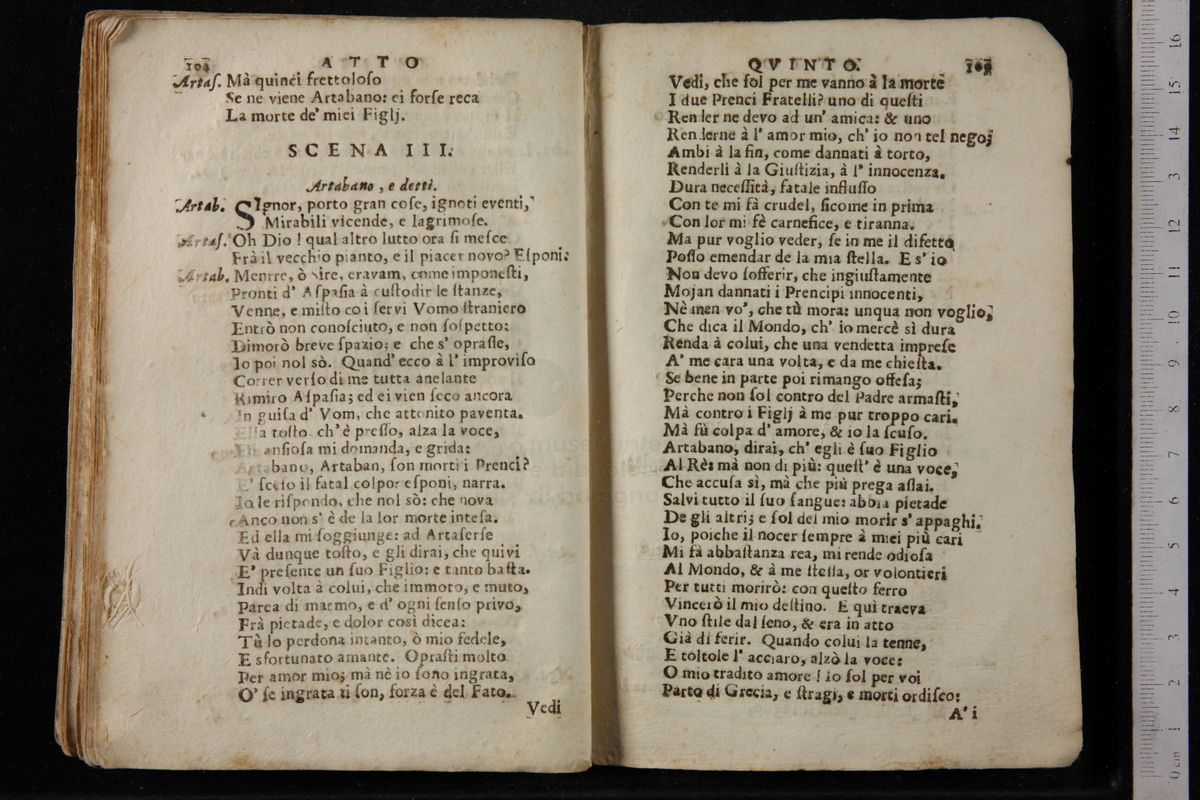 104 ATTO
Artaſ. Mà quinci frettoloſo
Se ne viene Artabano: ei forſe reca
La morte de' miei Figlj.
SCENA III.
Artabano, e detti.
Artab. SIgnor, porto gran coſe, ignoti eventi,
Mirabili vicende, e lagrimoſe.
Artaſ. Oh Dio! qual altro lutto ora ſi meſce
Frà il vecchio pianto, e il piacer novo? Eſponi.
Artab. Mentre, ò Sire, eravam, come imponeſti,
Pronti d' Aſpaſia à cuſtodir le ſtanze,
Venne, e miſto co i ſervi Vomo ſtraniero
Entrò non conoſciuto, e non ſoſpetto:
Dimorò breve ſpazio; e che s' opraſſe,
Io poi nol sò. Quand' ecco à l' improviſo
Correr verſo di me tutta anelante
Rimiro Aſpaſia; ed ei vien ſeco ancora
In guiſa d' Vom, che attonito paventa.
Ella toſto ch' è preſſo, alza la voce,
Ed anſioſa mi domanda, e grida:
Artabano, Artaban, ſon morti i Prenci?
E' ſceſo il fatal colpo? eſponi, narra.
Io le riſpondo, che nol sò: che nova
Anco non s' è de la lor morte inteſa.
Ed ella mi ſoggiunge: ad Artaſerſe
Và dunque toſto, e gli dirai, che quivi
E' preſente un ſuo Figlio: e tanto baſta.
Indi volta à colui, che immoto, e muto,
Parea di marmo, e d' ogni ſenſo privo,
Frà pietade, e dolor così dicea:
Tù lo perdona intanto, ò mio fedele,
E sfortunato amante. Opraſti molto
Per amor mio; mà nè io ſono ingrata,
O' ſe ingrata ti ſon, forza è del Fato.
Vedi
QVINTO. 105
Vedi, che ſol per me vanno à la morte
I due Prenci Fratelli? uno di queſti
Render ne devo ad un' amica: & uno
Renderne à l' amor mio, ch' io non tel nego;
Ambi à la fin, come dannati à torto,
Renderli à la Giuſtizia, à l' innocenza.
Dura neceſſità, fatale influſſo
Con te mi fà crudel, ſicome in prima
Con lor mi fè carnefice, e tiranna.
Ma pur voglio veder, ſe in me il difetto
Poſſo emendar de la mia ſtella. E s' io
Non devo ſofferir, che ingiuſtamente
Mojan dannati i Prencipi innocenti,
Nè men vo', che tù mora: unqua non voglio,
Che dica il Mondo, ch' io mercè sì dura
Renda à colui, che una vendetta impreſe
A' me cara una volta, e da me chieſta.
Se bene in parte poi rimango offeſa;
Perche non ſol contro del Padre armaſti,
Mà contro i Figlj à me pur troppo cari.
Mà fù colpa d' amore, & io la ſcuſo.
Artabano, dirai, ch' egli è ſuo Figlio
Al Rè: mà non di più: queſt' è una voce,
Che accuſa sì, mà che più prega aſſai.
Salvi tutto il ſuo ſangue: abbia pietade
De gli altri; e ſol del mio morir s' appaghi.
Io, poiche il nocer ſempre à miei più cari
Mi fà abbaſtanza rea, mi rende odioſa
Al Mondo, & à me ſteſſa, or volontieri
Per tutti morirò: con queſto ferro
Vincerò il mio deſtino. E quì traeva
Vno ſtile dal ſeno, & era in atto
Già di ferir. Quando colui la tenne,
E toltole l' acciaro, alzò la voce:
O mio tradito amore! io ſol per voi
Parto di Grecia, e ſtragi, e morti ordiſco:
A' i